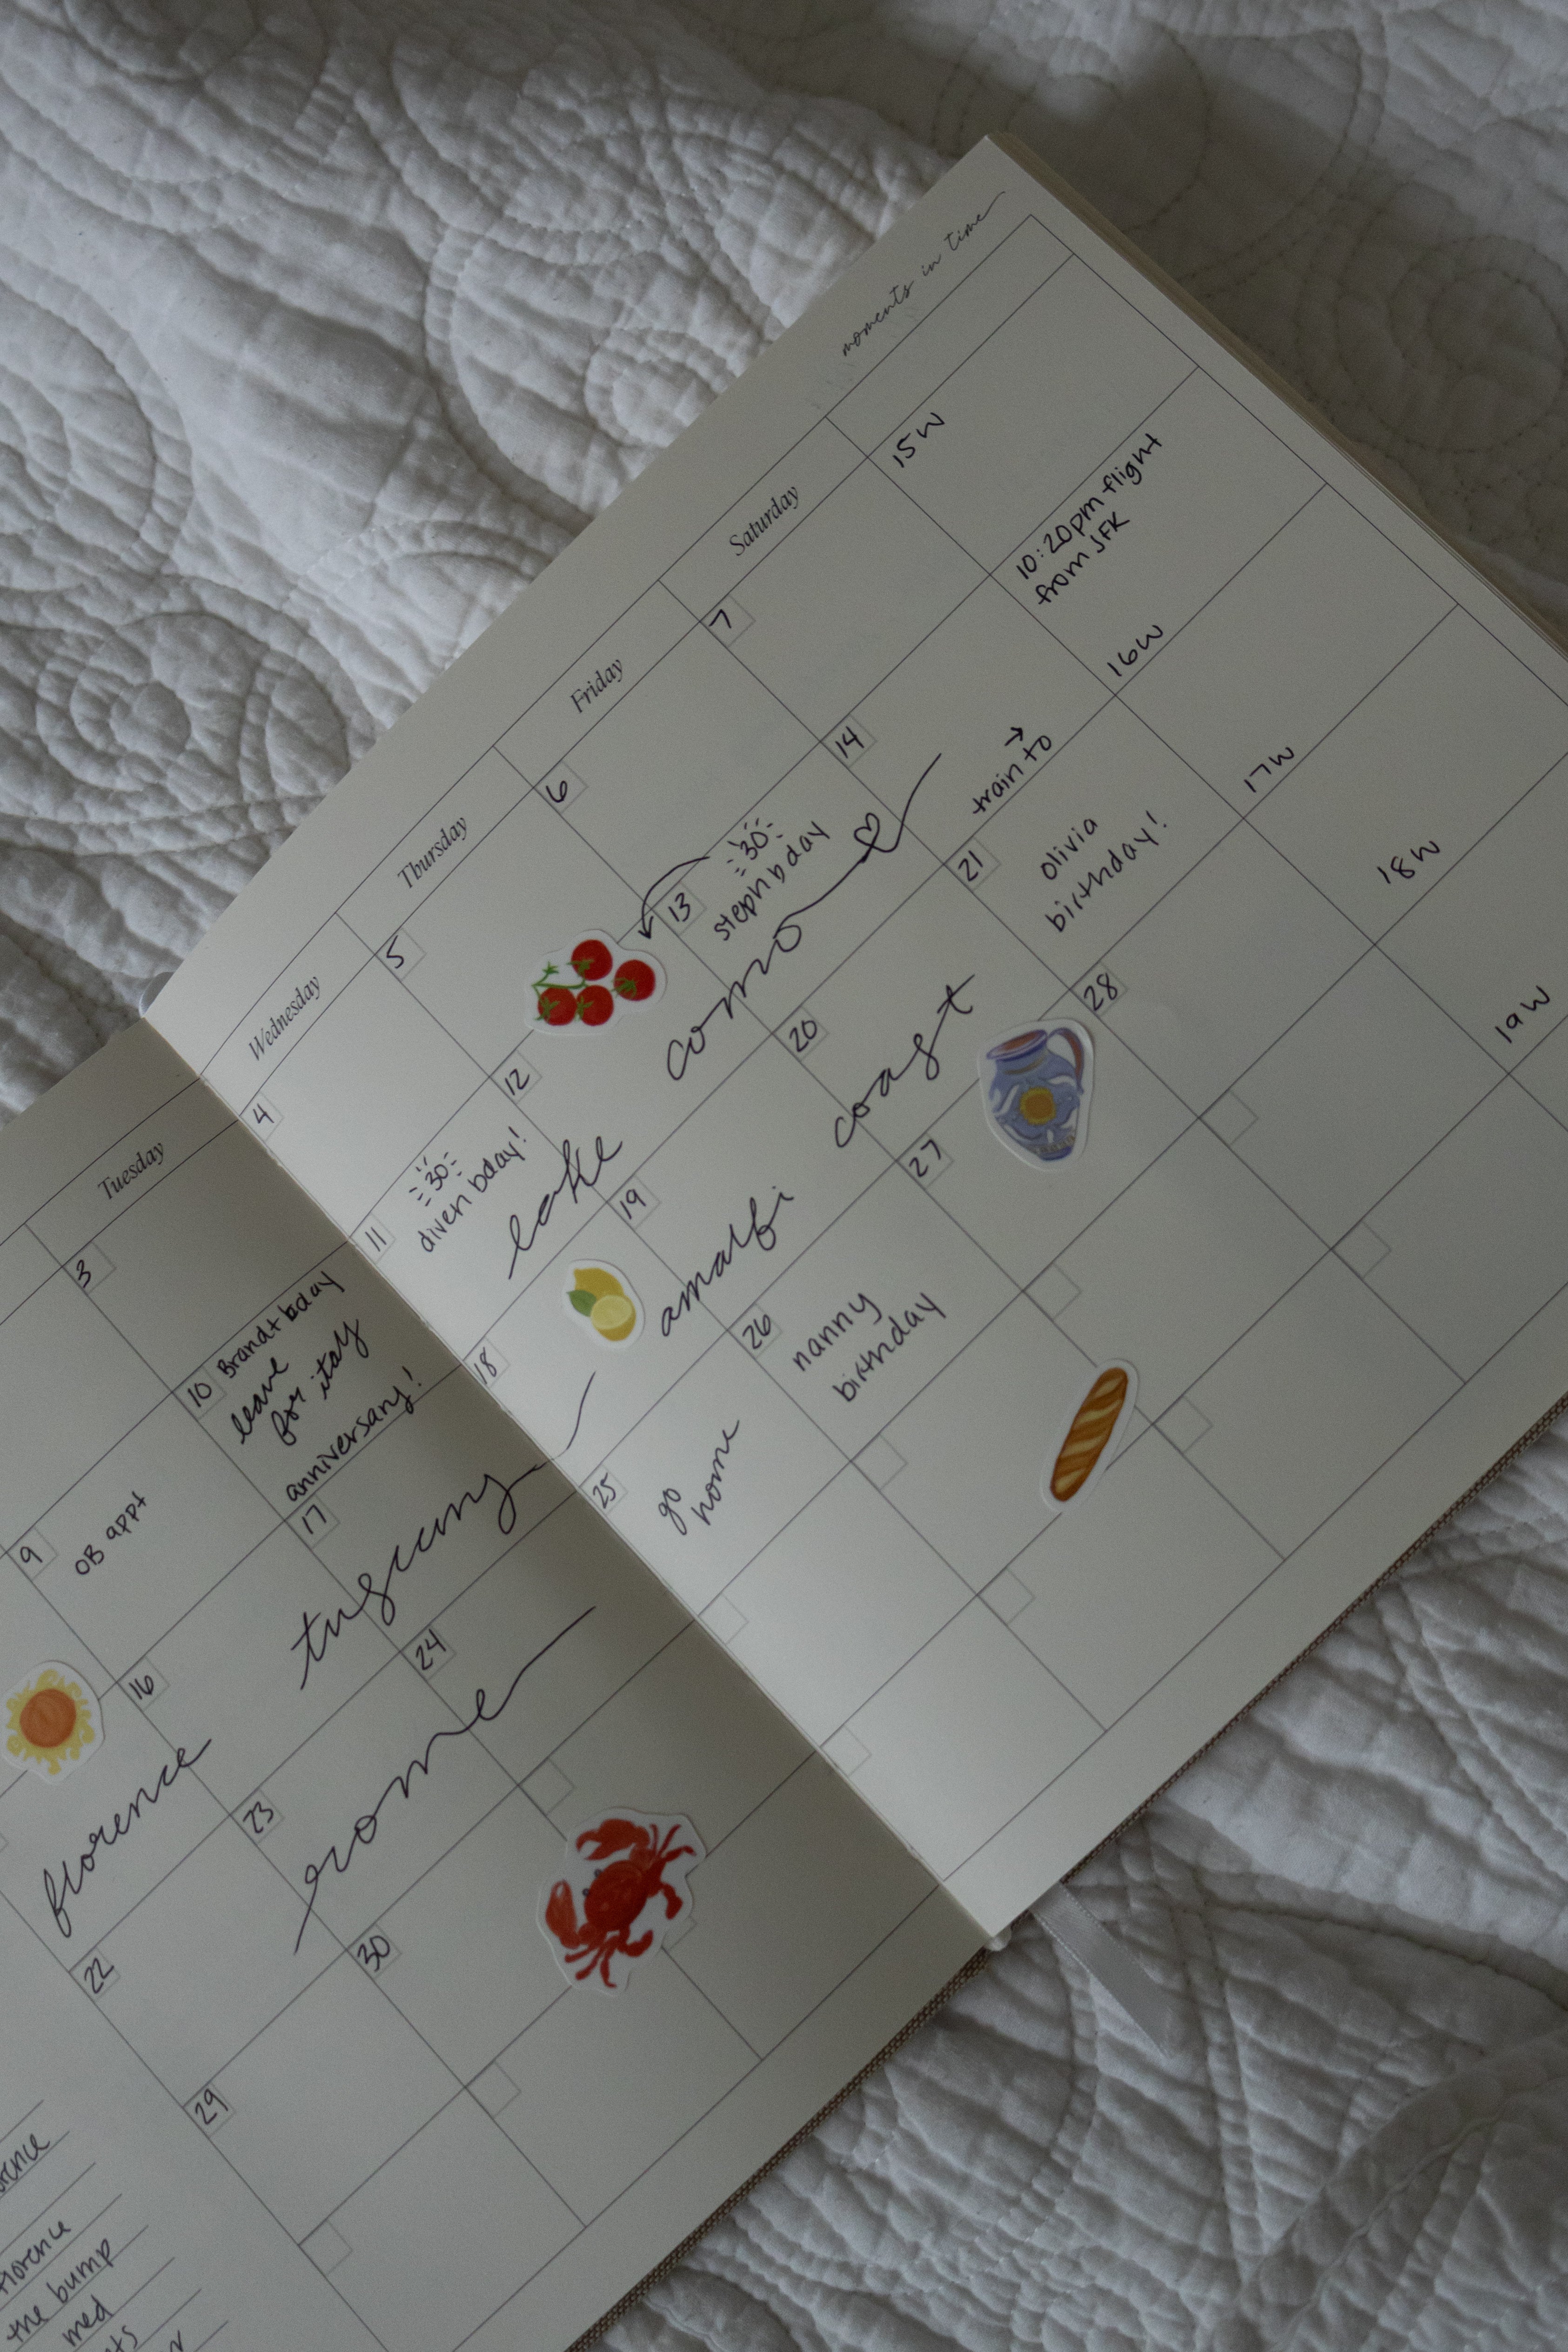 moments in time
Tuesday
Wednesday
Thursday
Friday
Saturday
3
4
5
6
7
15W
9
OB appt
10
Brandt bday
leave
for italy
anniversary!
11
30
diven bday!
12
13
30
steph bday
14
10:20pm flight
from JFK
lake
como
train to
16W
16
florence
17
tuscany
18
19
amalfi
20
coast
21
olivia
birthday!
17W
22
23
rome
24
25
go
home
26
nanny
birthday
27
28
18W
29
30
19W
florence
the bump
med